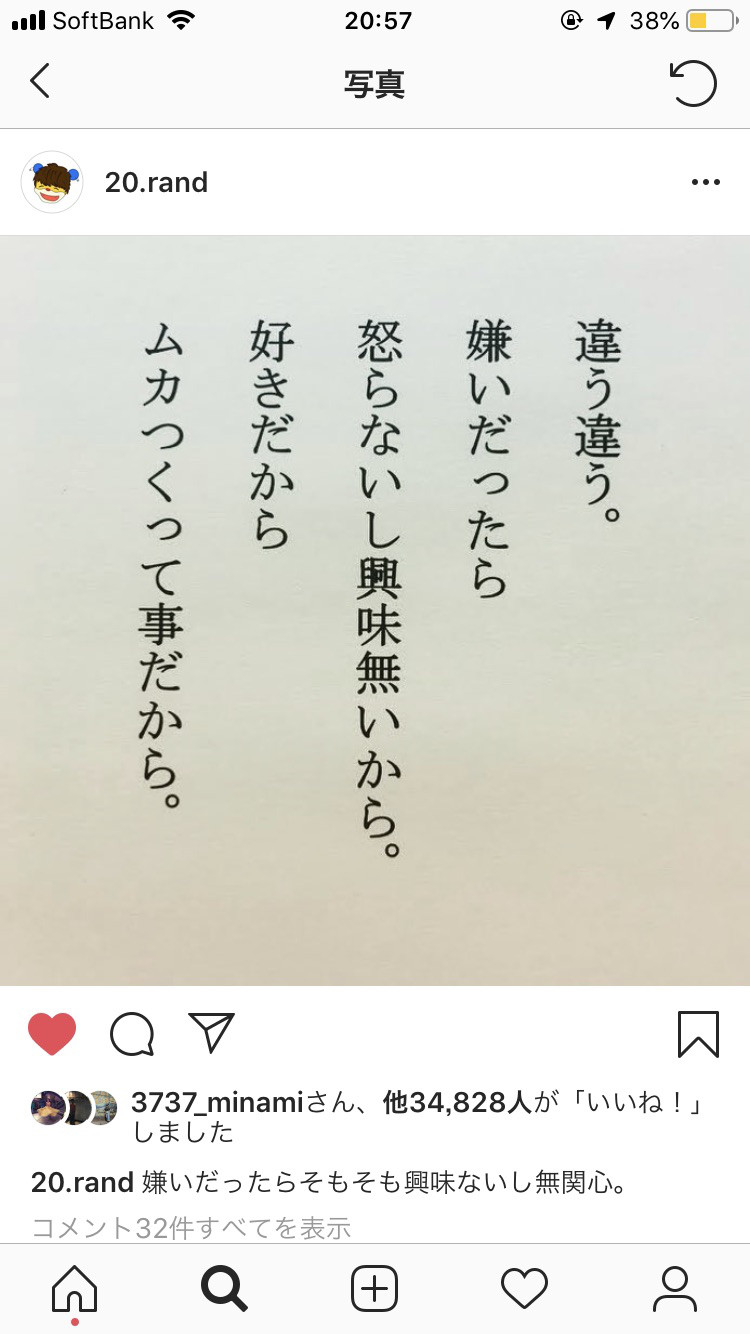 SoftBank 20:57 38%
写真
20.rand
違う違う。
嫌いだったら
怒らないし興味無いから。
好きだから
ムカつくって事だから。
3737_minamiさん、他34,828人が「いいね！」
しました
20.rand 嫌いだったらそもそも興味ないし無関心。
コメント32件すべてを表示